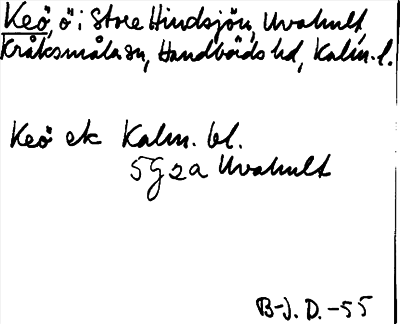 Keö, ö i Store Hindsjön, Uvahult,
Kråksmåla sn, Handbörds hd, Kalm. l.
Keö ek Kalm. bl.
5G 2a Uvahult
B-J. D. -55